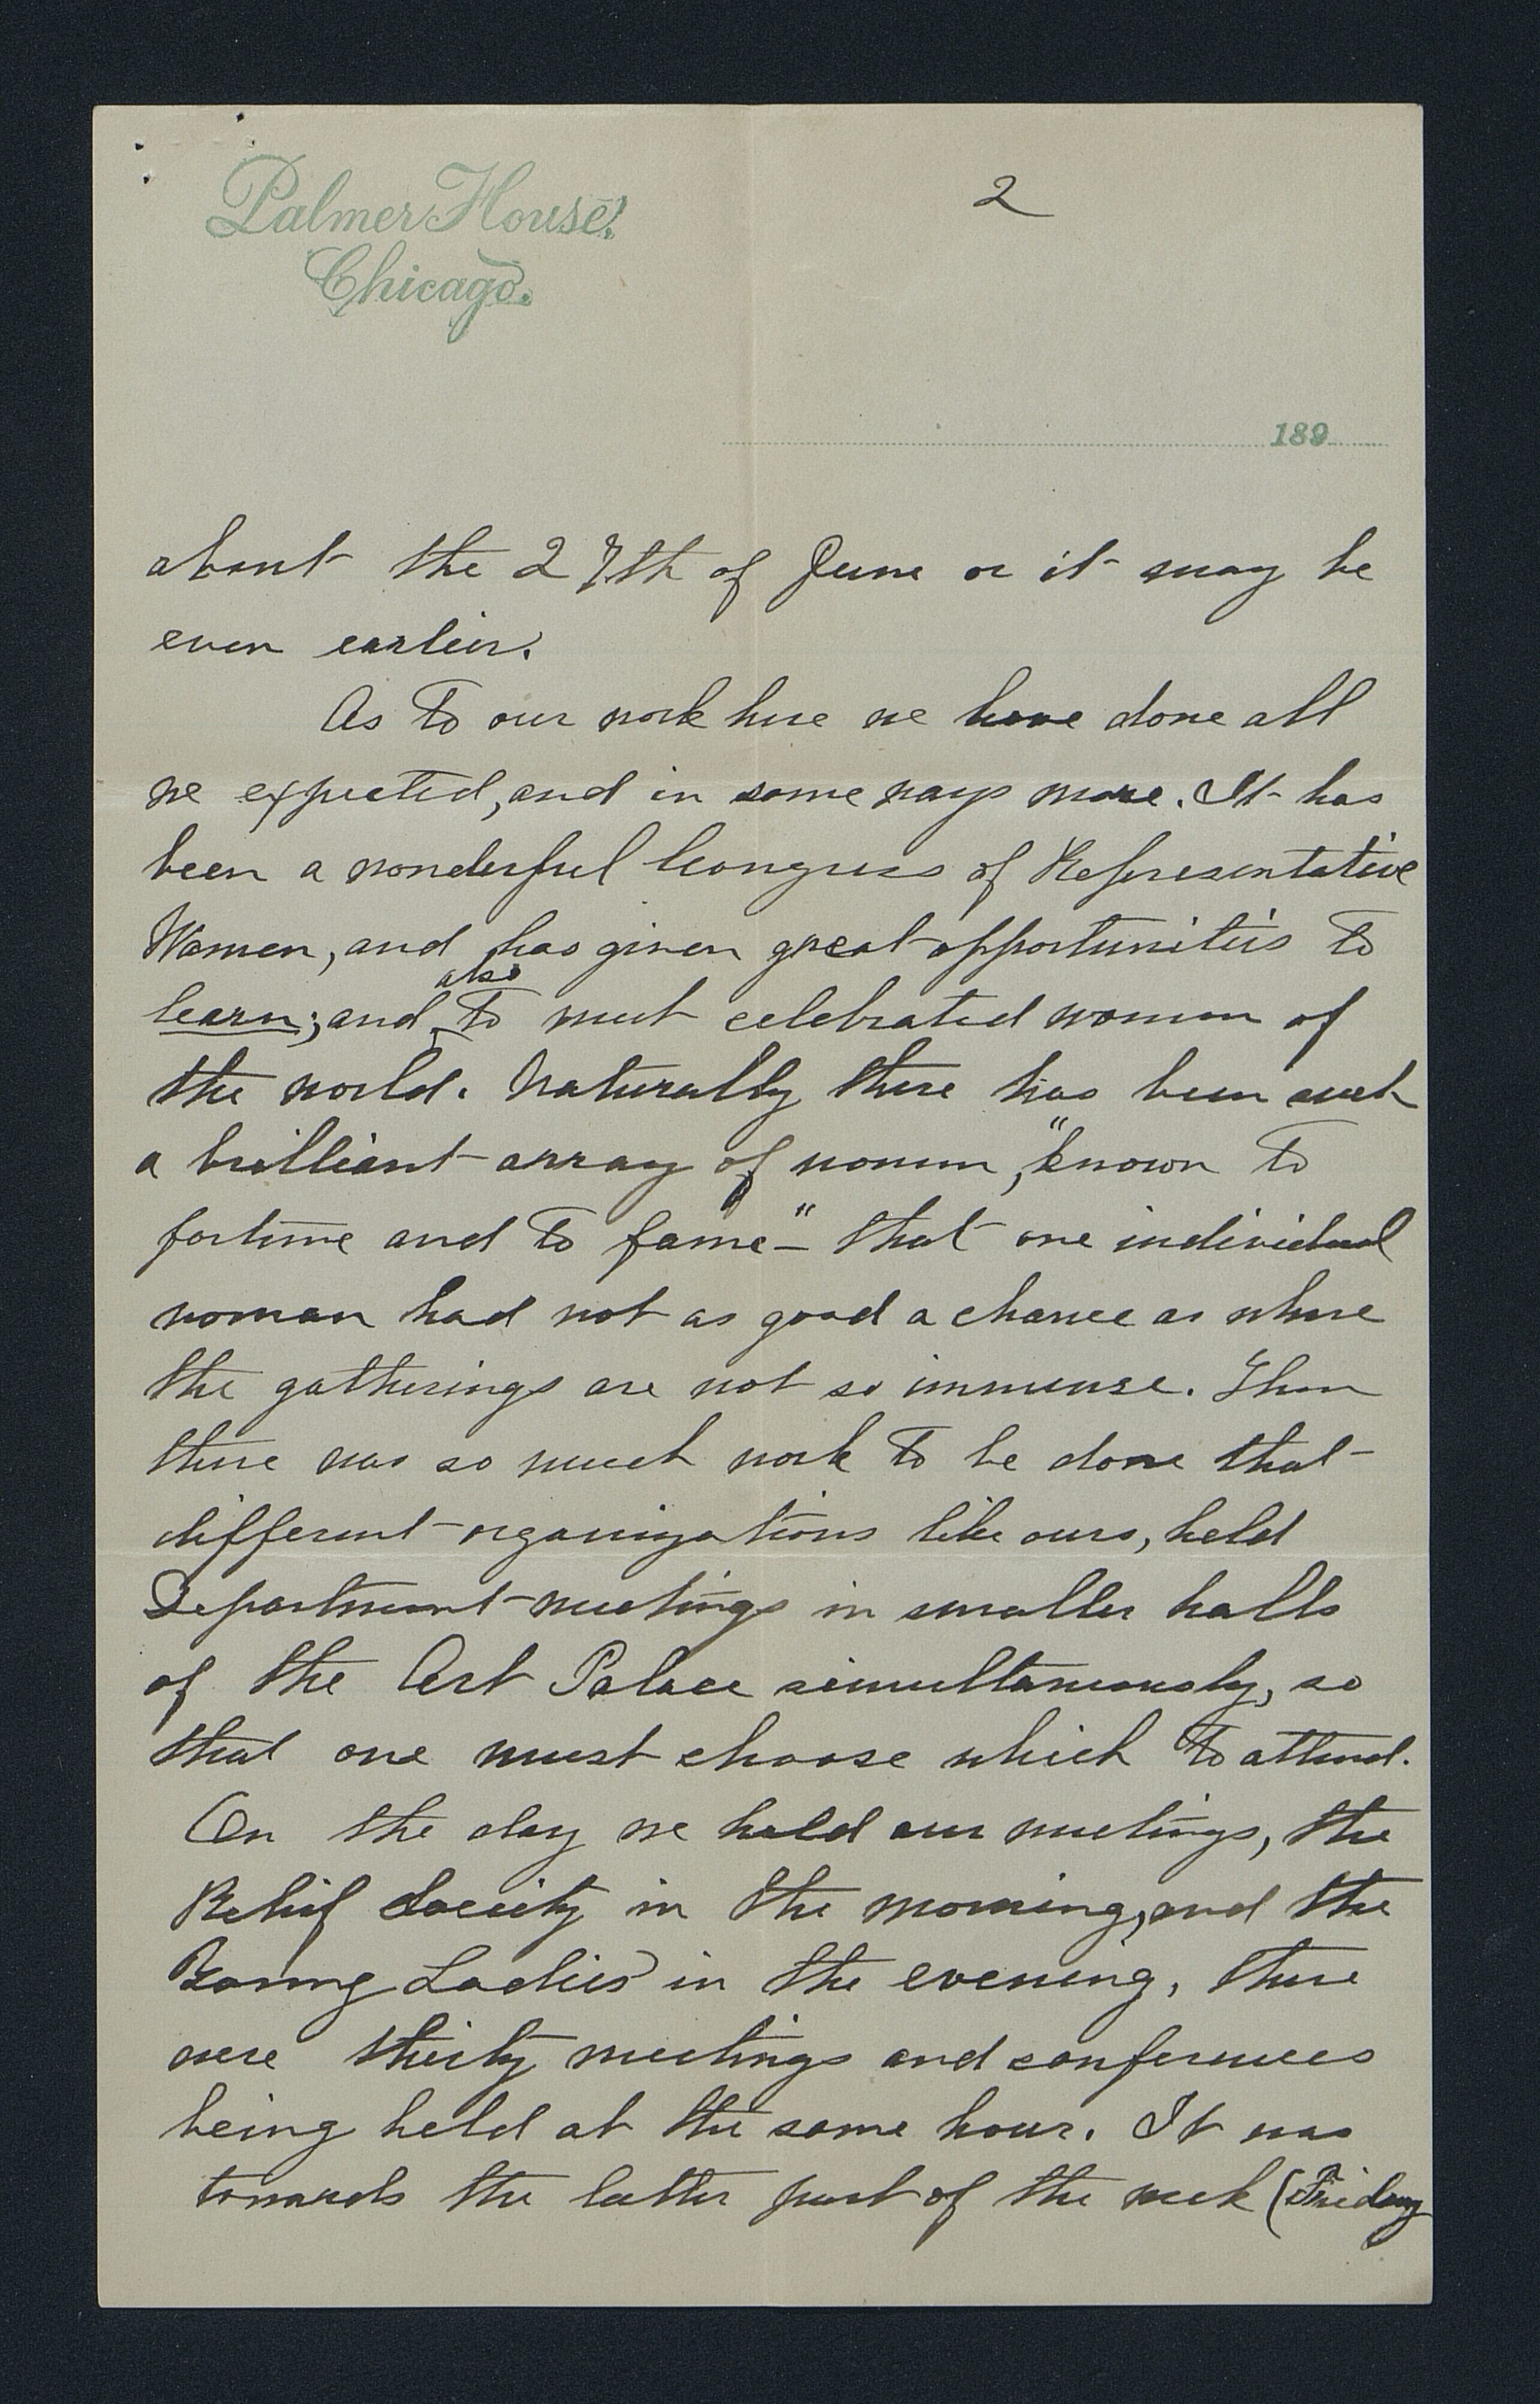 Palmer House,
Chicago.
2
189
about the 27th of June or it may be
even earlier.
As to our work here we have done all
we expected, and in some ways more. It has
been a wonderful Congress of Representative
Women, and has given great opportunities to
also
learn; and to meet celebrated women of
the world. Naturally there has been such
a brilliant array of women, "known to
fortune and to fame—" that one individual
woman had not as good a chance as where
the gatherings are not so immense. Then
there was so much work to be done that
different organizations like ours, held
Department meetings in smaller halls
of the Art Palace simultaneously, so
that one must choose which to attend.
On the day we held our meetings, the
Relief Society in the morning, and the
Young Ladies' in the evening, there
were thirty meetings and conferences
being held at the same hour. It was
towards the latter part of the week (Friday